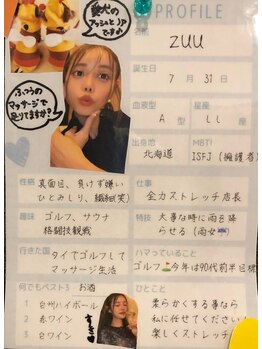 PROFILE
愛犬の
アッシュとJP
です♡
名前
ZUU
誕生日
7月31日
ふつうの
マッサージで
足りてますか?
血液型
A型
星座
LL座
出身地
北海道
MBTI
ISFJ(擁護者)
性格
真面目、負けず嫌い
ひとみしり、繊細(笑)
仕事
全力ストレッチ店長
趣味
ゴルフ、サウナ
格闘技観戦
特技
大事な時に雨を降
らせる(雨女)
行きた国
タイでゴルフして
マッサージ生活
ハマっていること
ゴルフ 今年は90代前半目標
何でもベスト3
お酒
1
2 赤ワイン
3 白ワイン
ひとこと
柔らかくする事なら
私に任せてください!
楽しくストレッチ